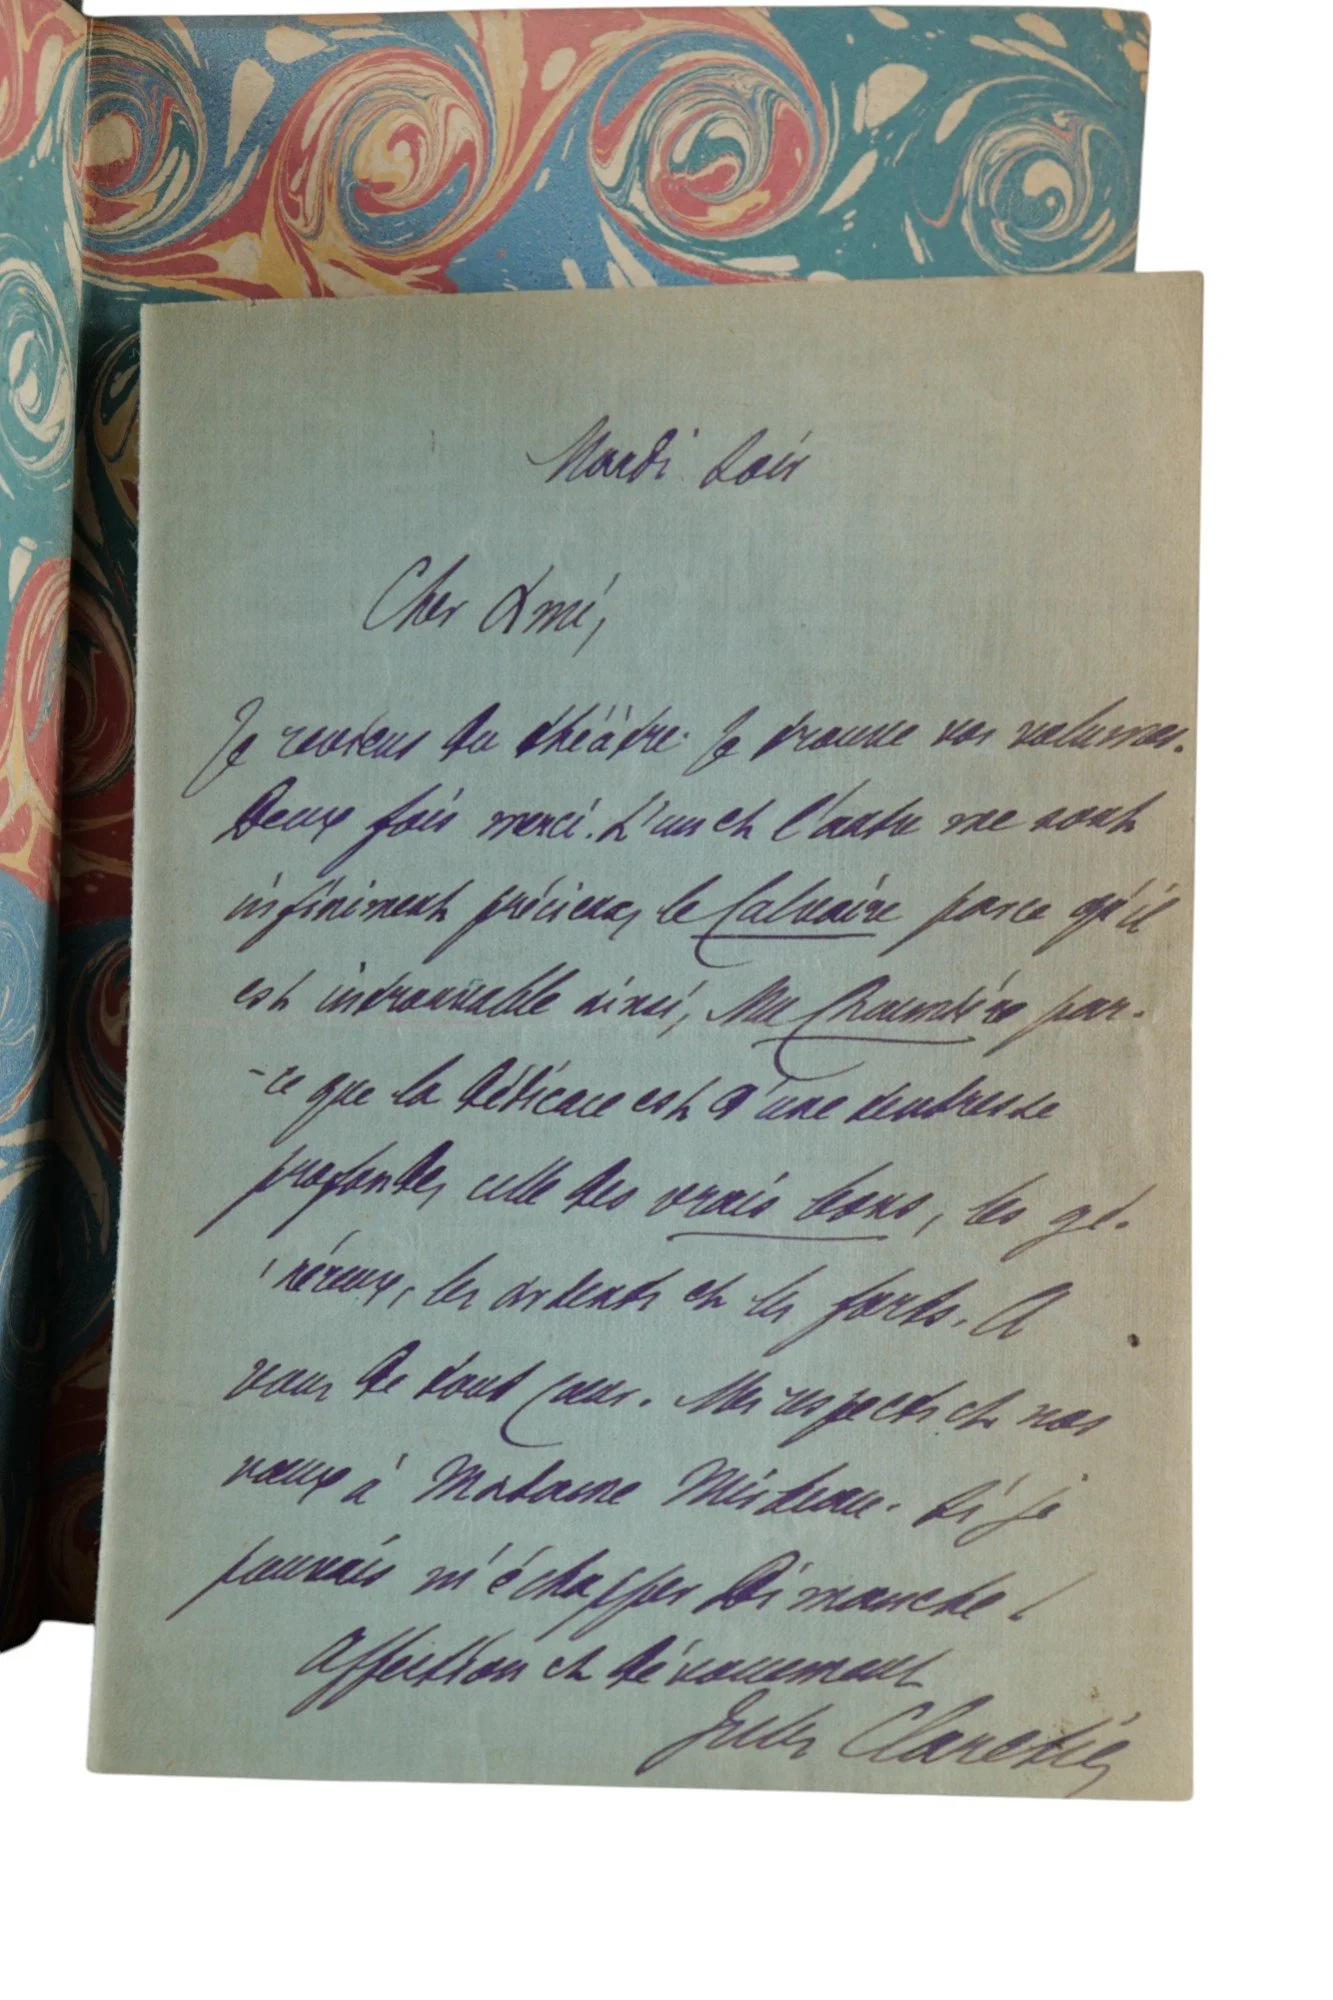 Mardi soir
Cher Ami,
Je reviens du théâtre. Je trouve vos volumes.
Deux fois merci. L'un et l'autre me sont
infiniment précieux, le Calvaire parce qu'il
est introuvable ainsi, Ma Chaumière par-
-ce que la dédicace est d'une tendresse
profonde, celle des vrais bons, les gé-
néreux, les ardents et les forts. A
vous de tout cœur. Mes respects et nos
vœux à Madame Mirbeau. Si je
pouvais m'échapper Dimanche !
Affection et dévouement
Jules Claretie